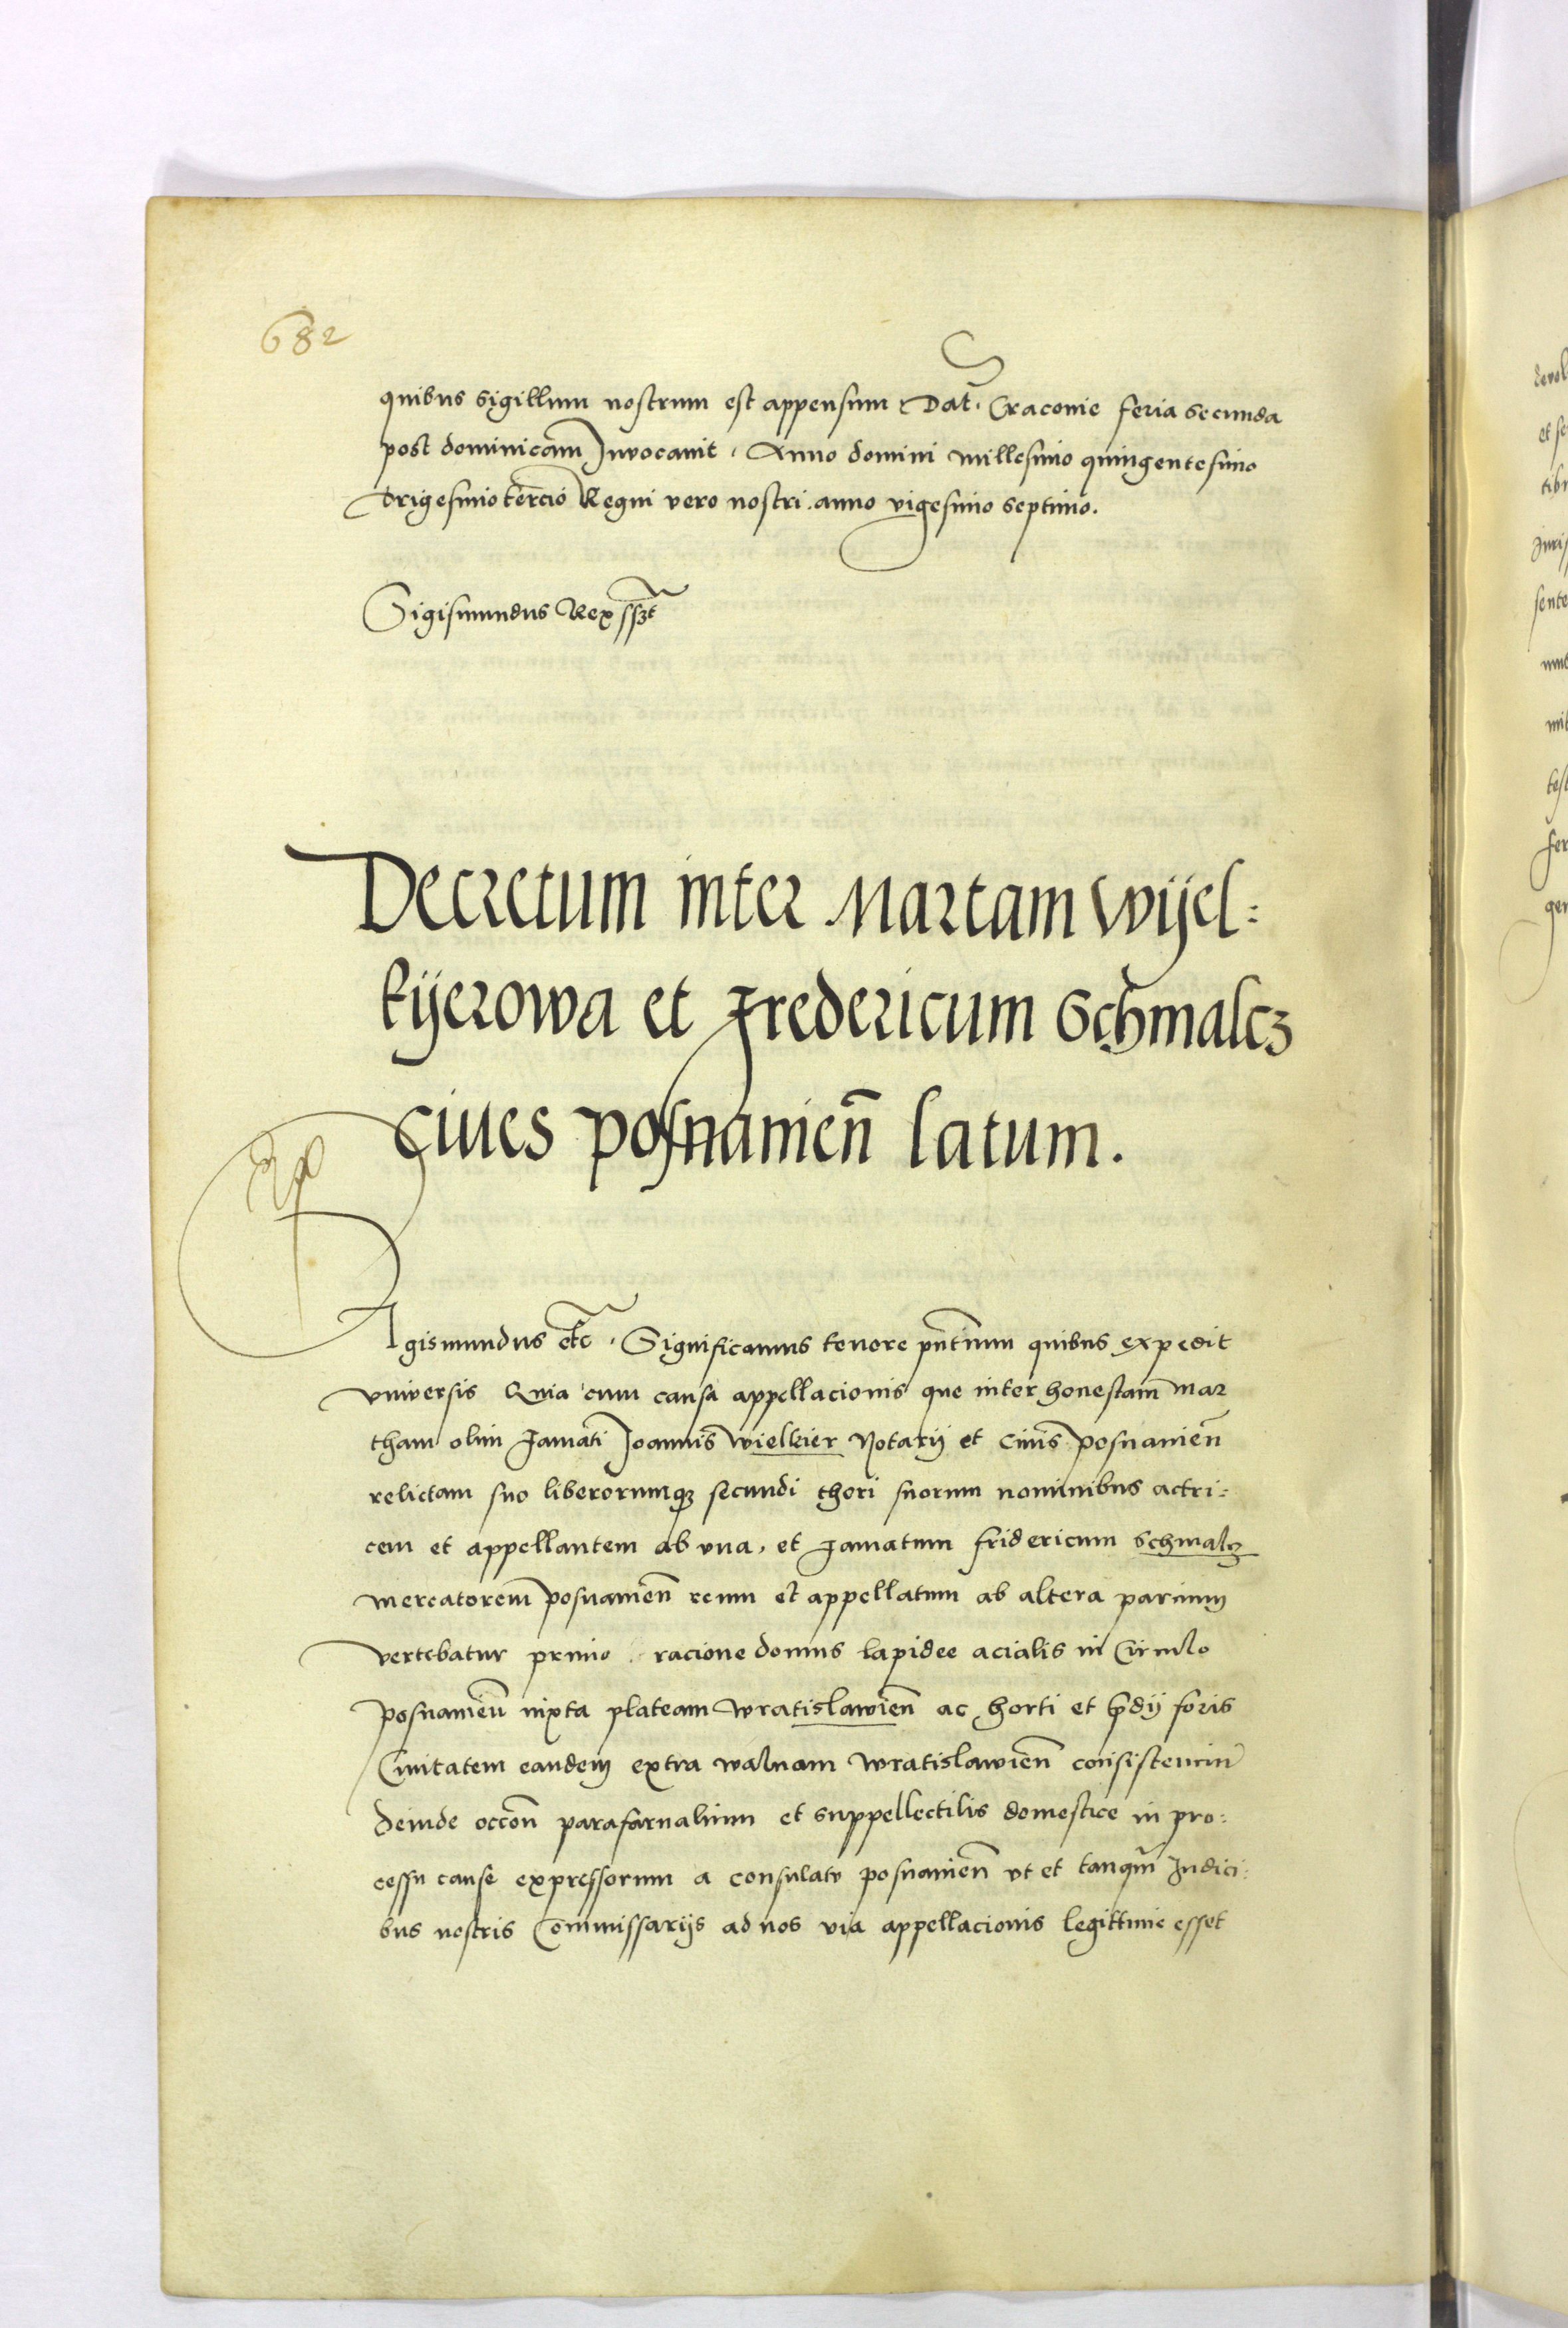 682
quibus sigillum nostrum est appensum Dat. Craconie feria secunda
post dominicam Invocavit. Anno domini millesimo quingentesimo
trigesimo tercio Regni vero nostri anno vigesimo septimo.
Sigismundus Rex sszt
Decretum inter Martam Wijel:
kijerowa et Fredericum Schmalcz
ciues posnanień latum.
Sigismundus etc. Significamus tenore pñtium quibus expedit
vniversis Quia cum causa appellacionis que inter honestam Mar
tham olim famati Joannis wielkier Notarij et Civis posnanień
relictam suo liberorumqȝ secundi thori suorum nominibus actri:
cem et appellantem ab vna, et famatum fridericum schmalcz
mercatorem posnanień reum et appellatum ab altera parcium
vertebatur primo racione domus lapidee acialis in Circulo
posnanień iuxta plateam wratislawień ac horti et p̃dij foris
Civitatem eandem extra walvam wratislawień consistenciũ
deinde occoñ parafarnalium et suppellectilis domestice in pro:
cessu cause expressorum a consulatu posnanień vt et tanqȝ Iudici:
bus nostris Commissarijs ad nos via appellacionis legittime esset